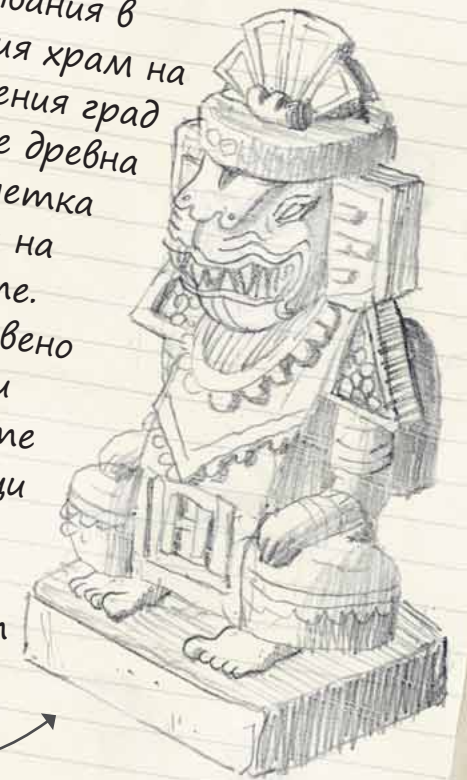 вания в
ия храм на
ения град
е древна
етка
на
вено
и
те
щи